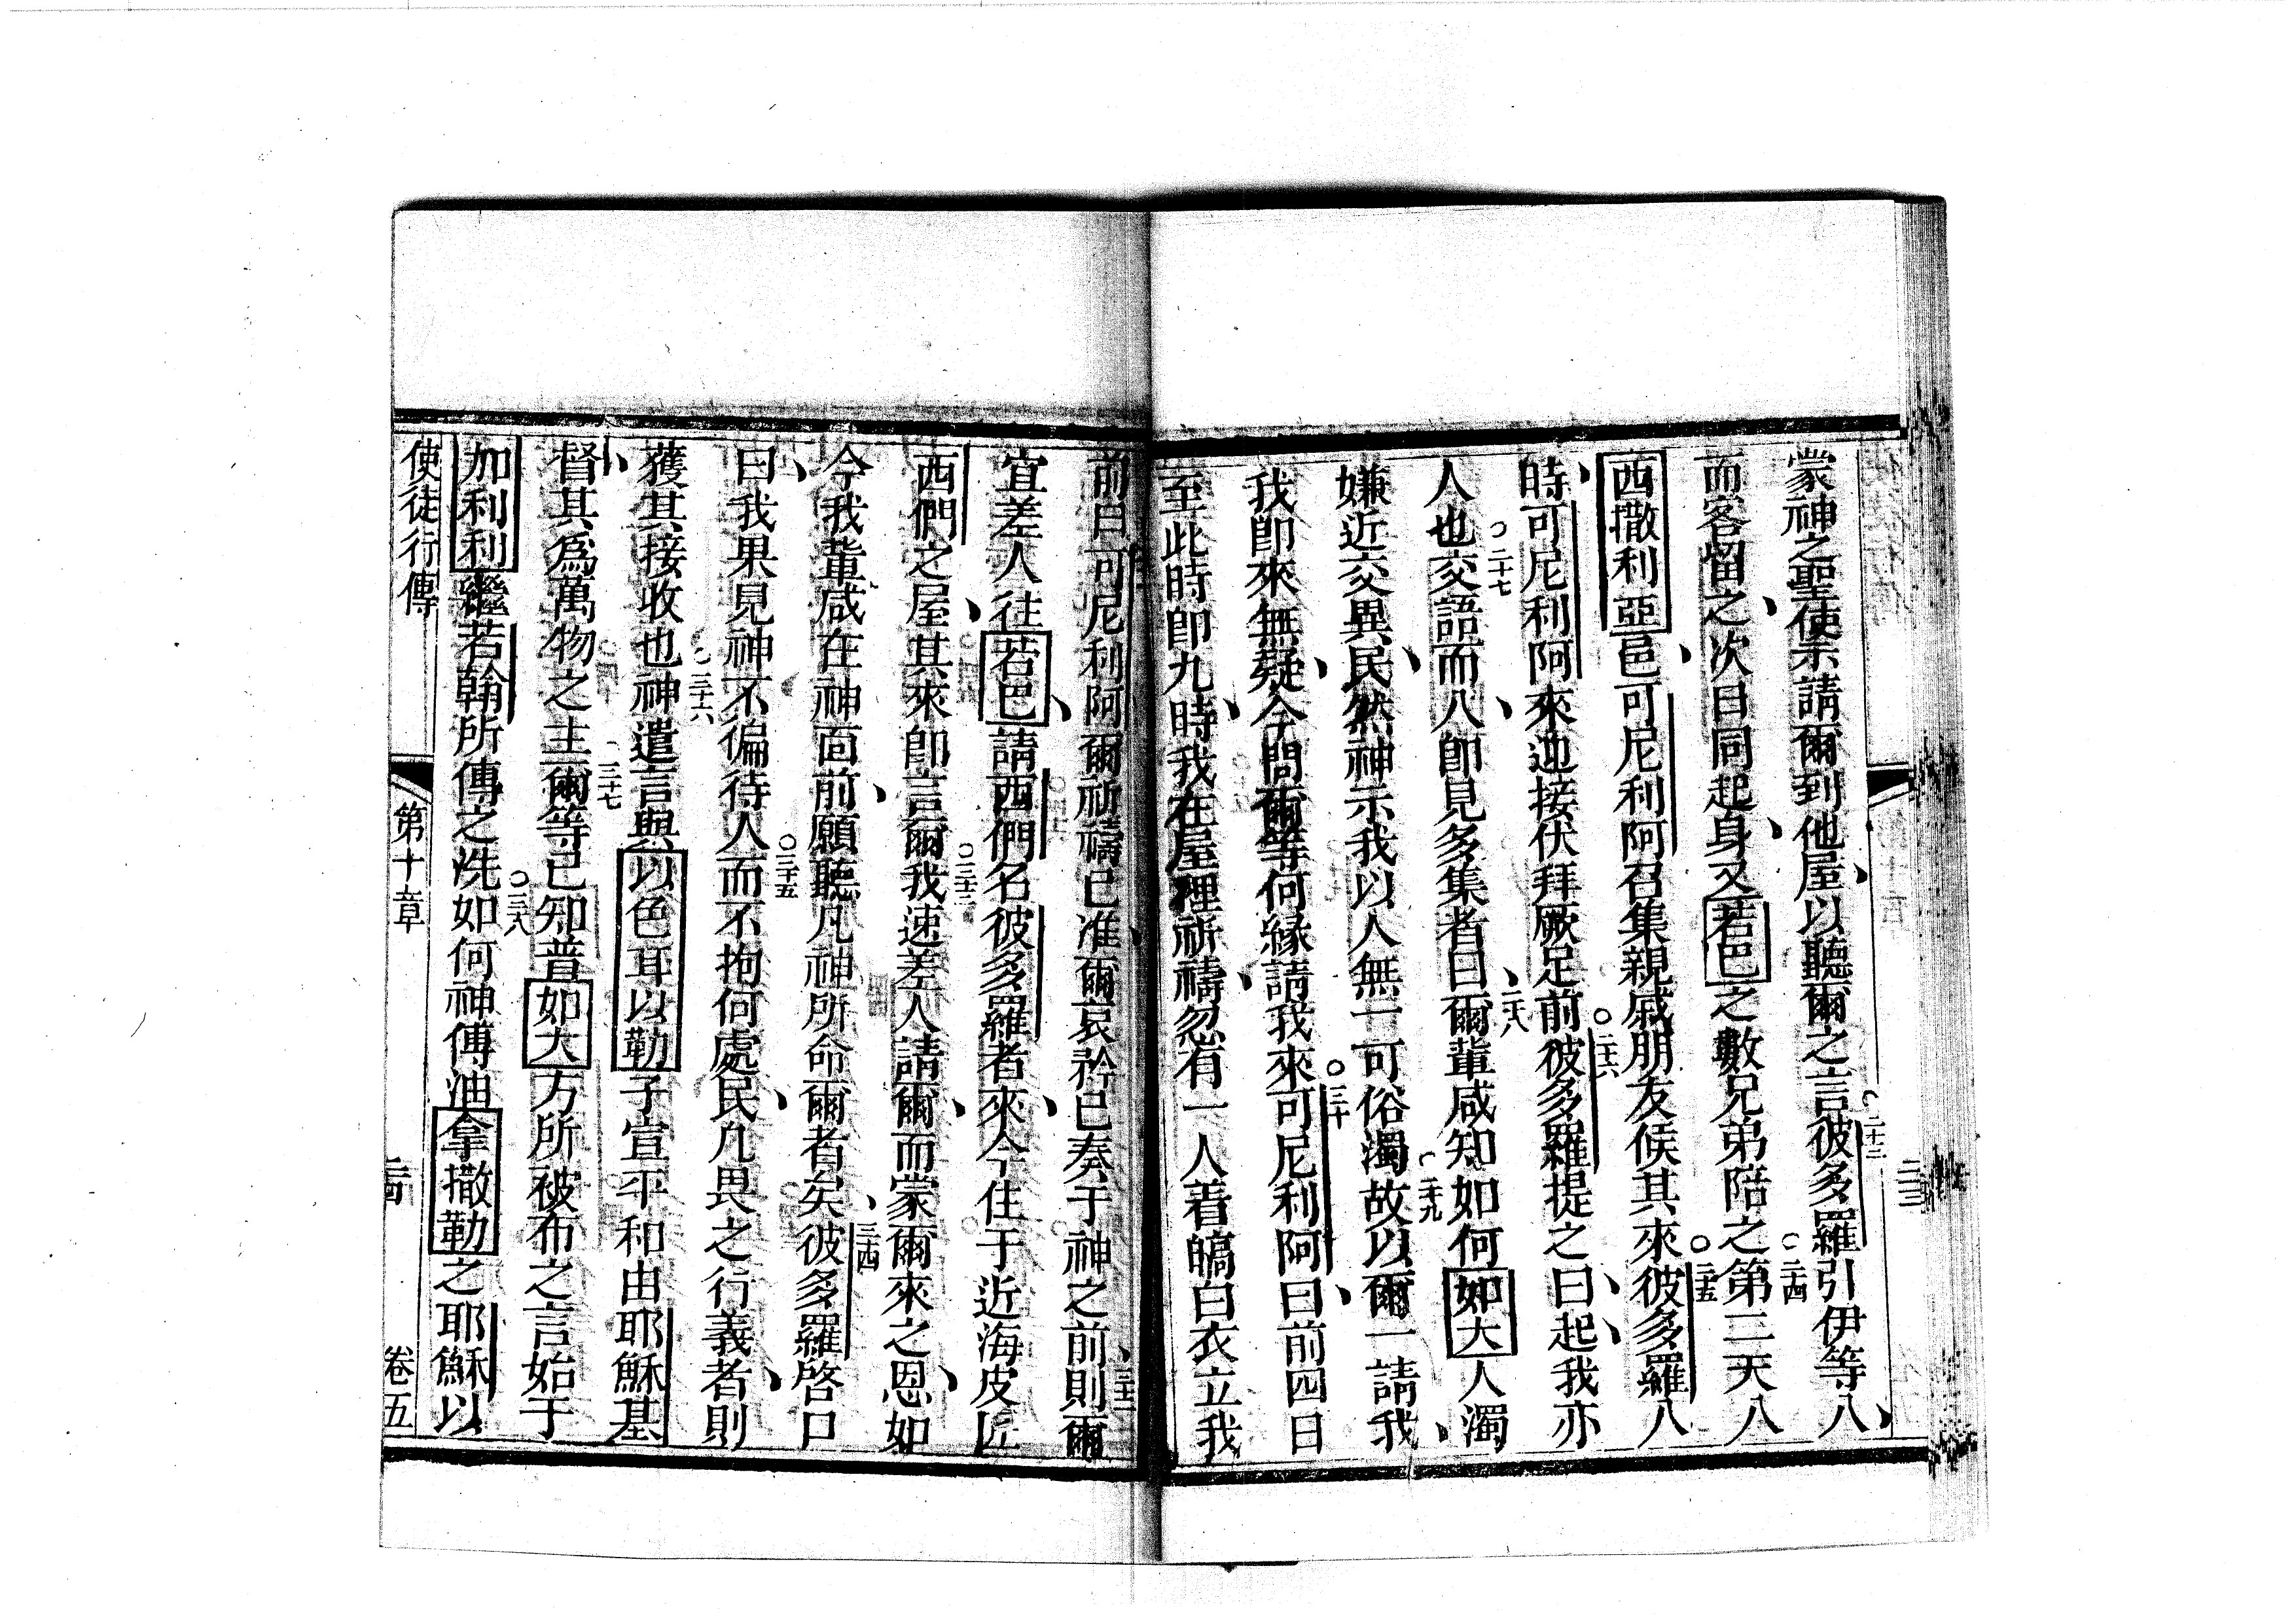 蒙神之聖使示請爾到他屋以聽爾之言○二十三彼多羅引伊等入
而客留之次日同起身又若巴之數兄弟陪之○二十四第二天入
西撒利亞邑可尼利阿召集親戚朋友候其來○二十五彼多羅入
時可尼利阿來迎接伏拜厥足前○二十六彼多羅提之曰起我亦
人也○二十七交語而入即見多集者曰○二十八爾輩咸知如何如大人濁
嫌近交異民然神示我以人無一可俗濁○二十九故以爾一請我
我即來無疑今問爾等何緣請我來○三十可尼利阿曰前四日
至此時即九時我在屋裡祈禱忽有一人着皜白衣立我
前曰可尼利阿爾祈禱已准爾哀矜已奏于神之前○三十二則爾
宜差人往若巴請西們名彼多羅者來今住于近海皮匠
西們之屋其來即言爾○三十三我速差人請爾而蒙爾來之恩如
今我輩咸在神面前願聽凡神所命爾者矣○三十四彼多羅啓口
曰我果見神不徧待人○三十五而不拘何處民凡畏之行義者則
獲其接收也○三十六神遣言與以色耳以勒子宣平和由耶穌基
督其為萬物之主○三十七爾等已知普如大方所被布之言始于
加利利繼若翰所傳之洗○三十八如何神傅油拿撒勒之耶穌以
使徒行傳 第十章 二十四 卷五